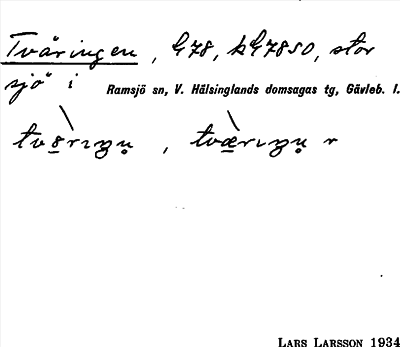 Tväringen, G78, bG7850, stor
sjö i Ramsjö sn, V. Hälsinglands domsagas tg, Gävleb. l.
LARS LARSSON 1934